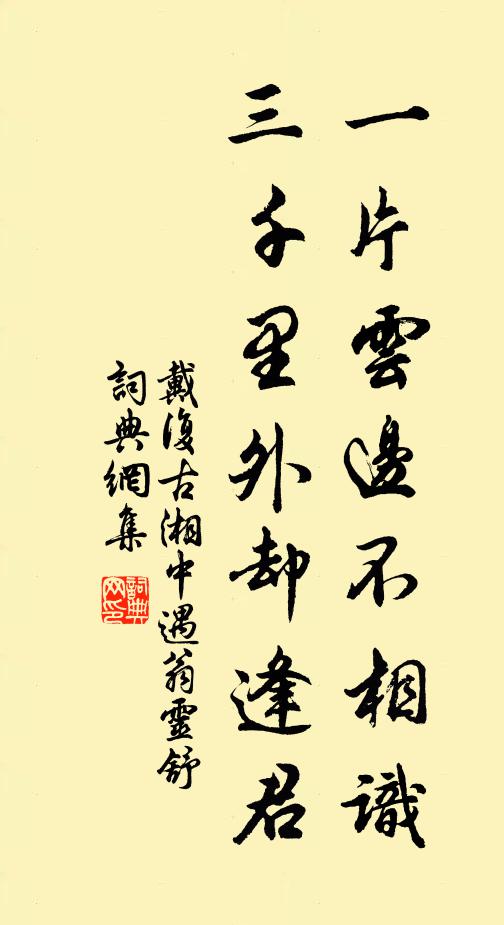 一片雲邊不相識
三千里外却逢君
戴復古湘中遇翁靈舒
詞典網集
詞典
网印